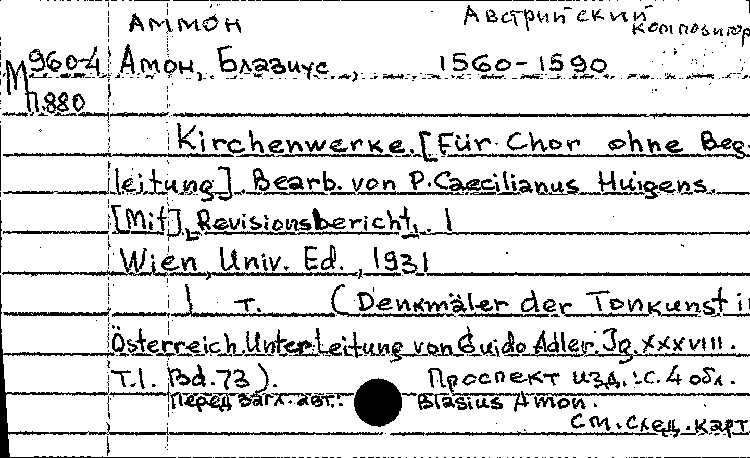 АММОН Австрийский композитор
М 960-4 Амон, Блазиус, 1560-1590
П.880
Kirchenwerke. [Für Chor ohne Beg-
leitung]. Bearb. von P. Caecilianus Huigens.
[Mit] Revisionsbericht. I
Wien, Univ. Ed., 1931
I т. (Denkmäler der Tonkunst i
Österreich. Unter Leitung von Guido Adler. Jg. XXXVIII.
T.I. Bd. 73). Проспект изд.: с. 4 обл.
Перед загл. авт.: Blasius Amon.
См. след. карт